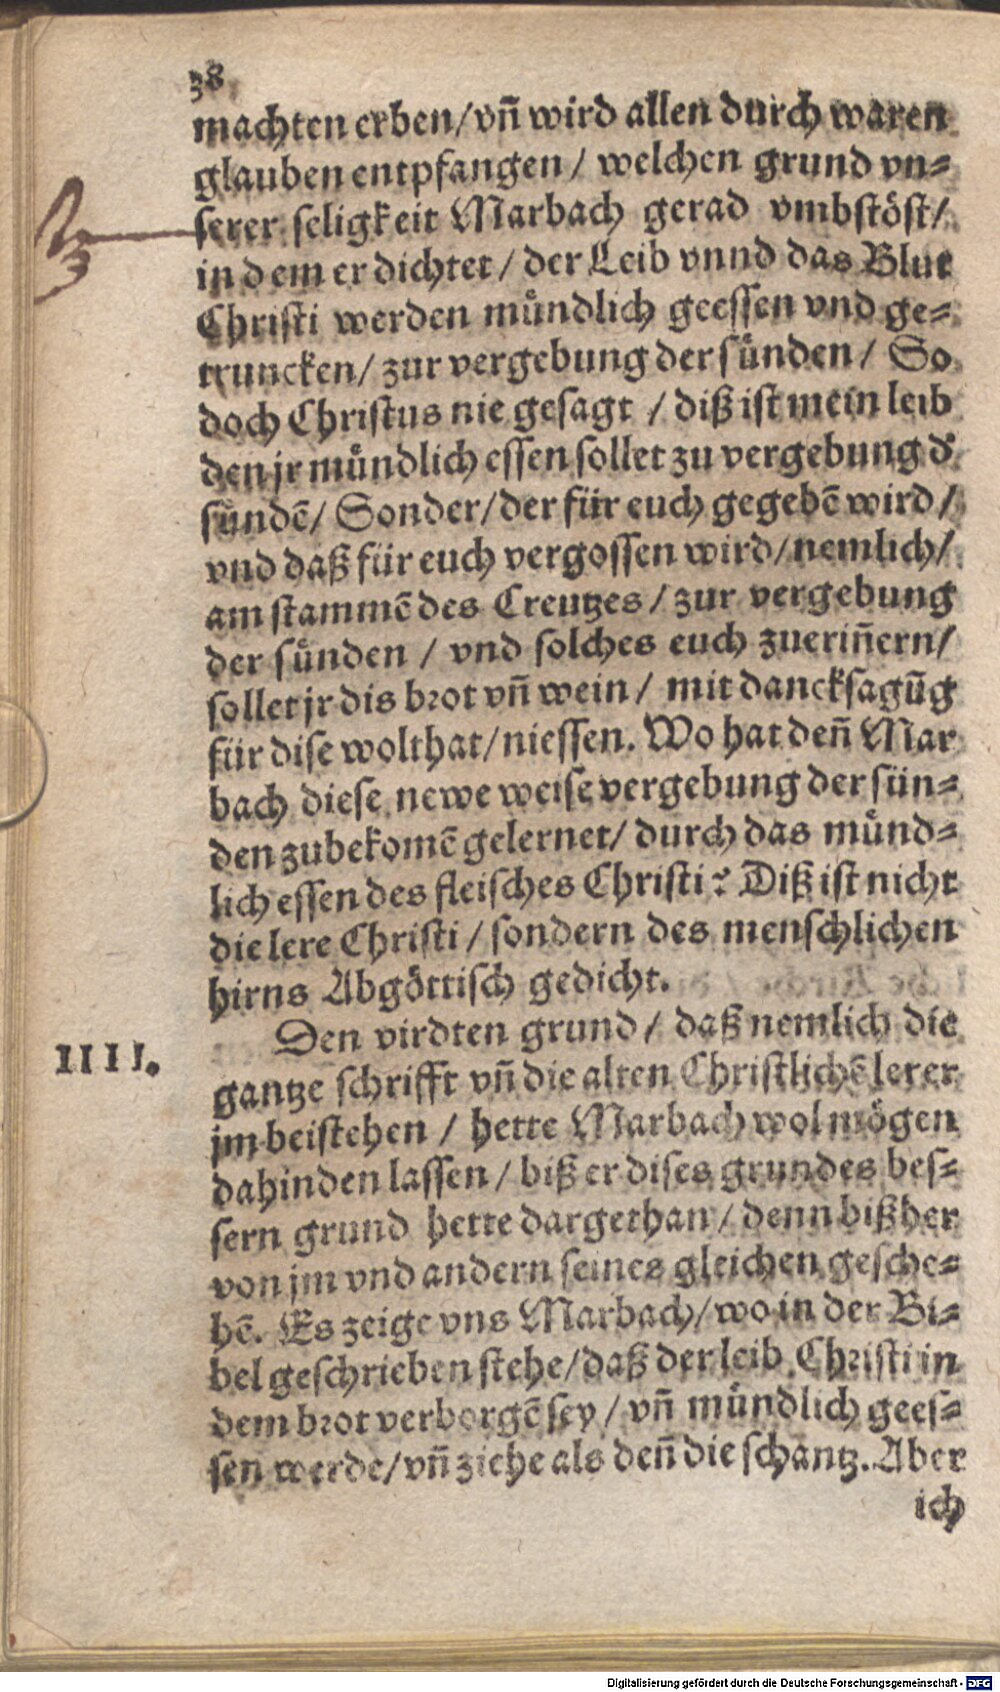 38
machten erben/ vñ wird allen durch waren
glauben entpfangen/ welchen grund vn⸗
serer seligkeit Marbach gerad vmbstöst/
in dem er dichtet/ der Leib vnnd das Blut
Christi werden můndlich geessen vnd ge⸗
truncken/ zur vergebung der sůnden/ So
doch Christus nie gesagt/ diß ist mein leib
den jr můndlich essen sollet zu vergebung d᷑
sůndē/ Sonder/ der für euch gegebē wird/
vnd daß für euch vergossen wird/ nemlich/
am stammē des Creutzes/ zur vergebung
der sůnden/ vnd solches euch zueriñern/
sollet jr dis brot vñ wein/ mit dancksagūg
für dise wolthat/ niessen. Wo hat deñ Mar
bach diese newe weise vergebung der sün⸗
den zubekomē gelernet/ durch das můnd⸗
lich essen des fleisches Christi? Diß ist nicht
die lere Christi/ sondern des menschlichen
hirns Abgöttisch gedicht.
IIII. Den virdten grund/ daß nemlich die
gantze schrifft vñ die alten Christlichē lerer
jm beistehen/ hette Marbach wol mögen
dahinden lassen/ biß er dises grundes bes⸗
sern grund hette dargethan/ denn bißher
von jm vnd andern seines gleichen gesche⸗
hē. Es zeige vns Marbach/ wo in der Bi⸗
bel geschrieben stehe/ daß der leib Christi in
dem brot verborgē sey/ vñ můndlich gees⸗
sen werde/ vñ ziehe als deñ die schantz. Aber
ich
Digitalisierung gefördert durch die Deutsche Forschungsgemeinschaft - DFG